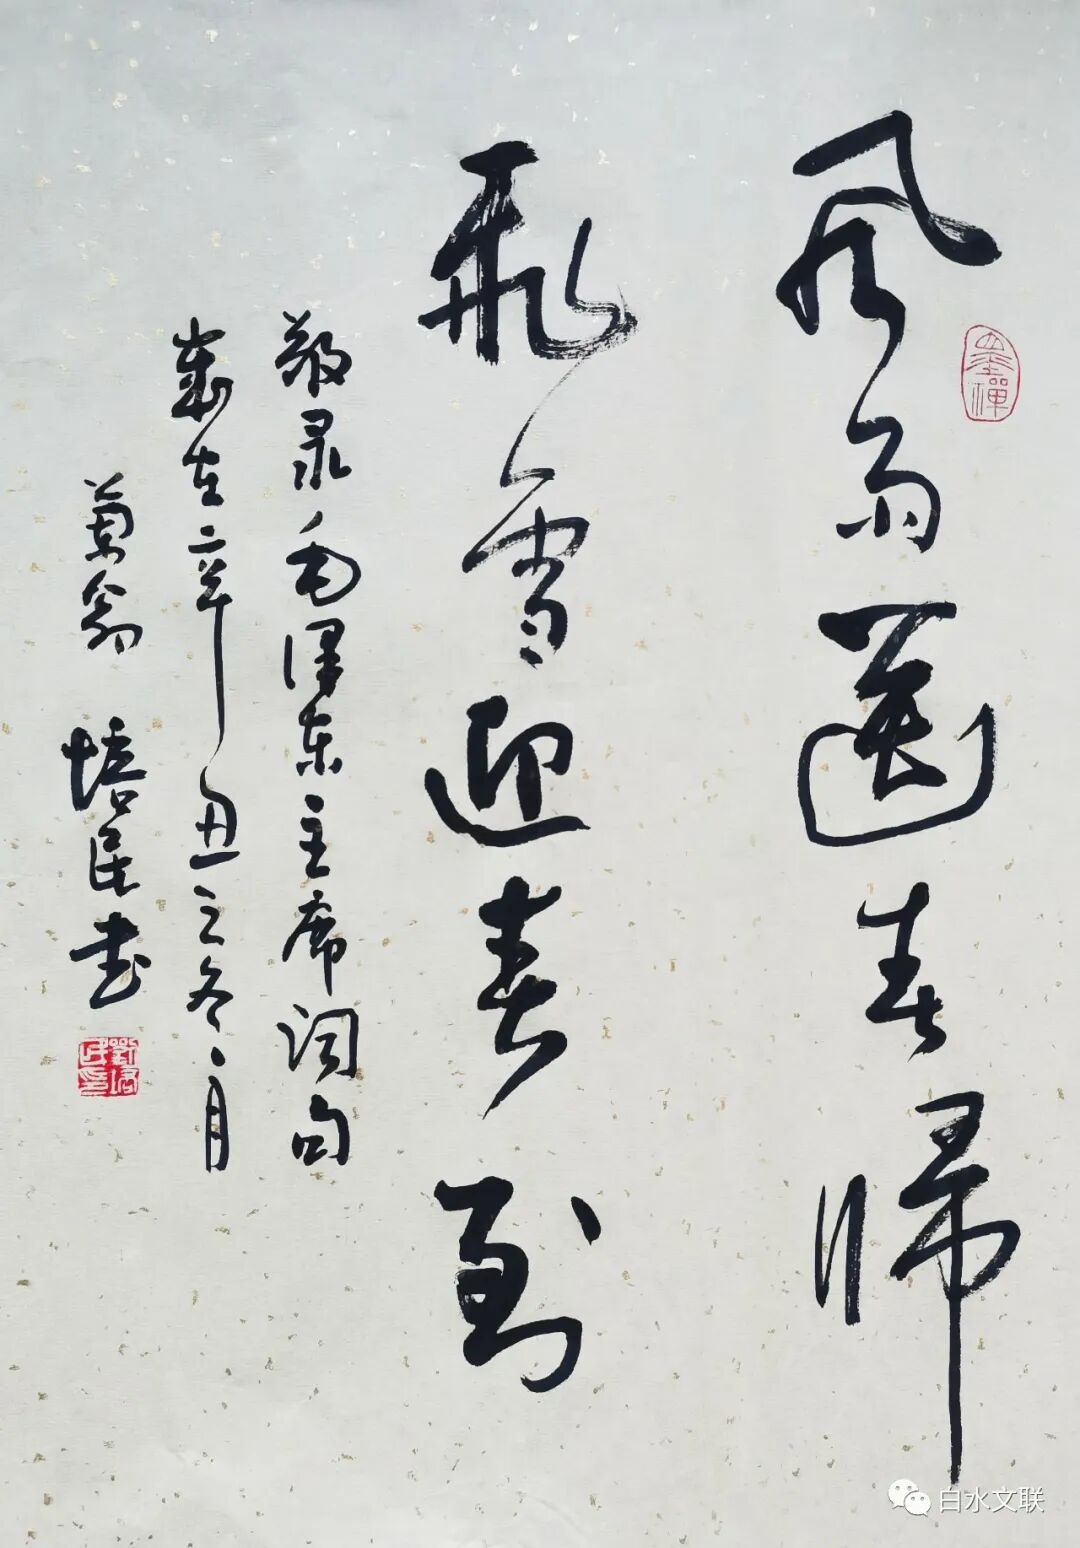 风雨送春帰
飛雪迎春到
敬录毛泽东主席词句
岁在辛丑之冬月
翁 培民书
墨禪
白水文联